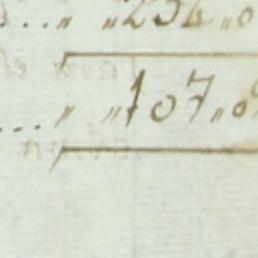 ... „ „ 256 „ 0
... „ „ 107 „ 0